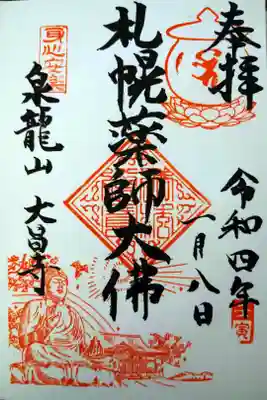 奉拝
令和四年
寅
一月八日
札幌薬師大佛
身心安楽
泉龍山 大昌寺